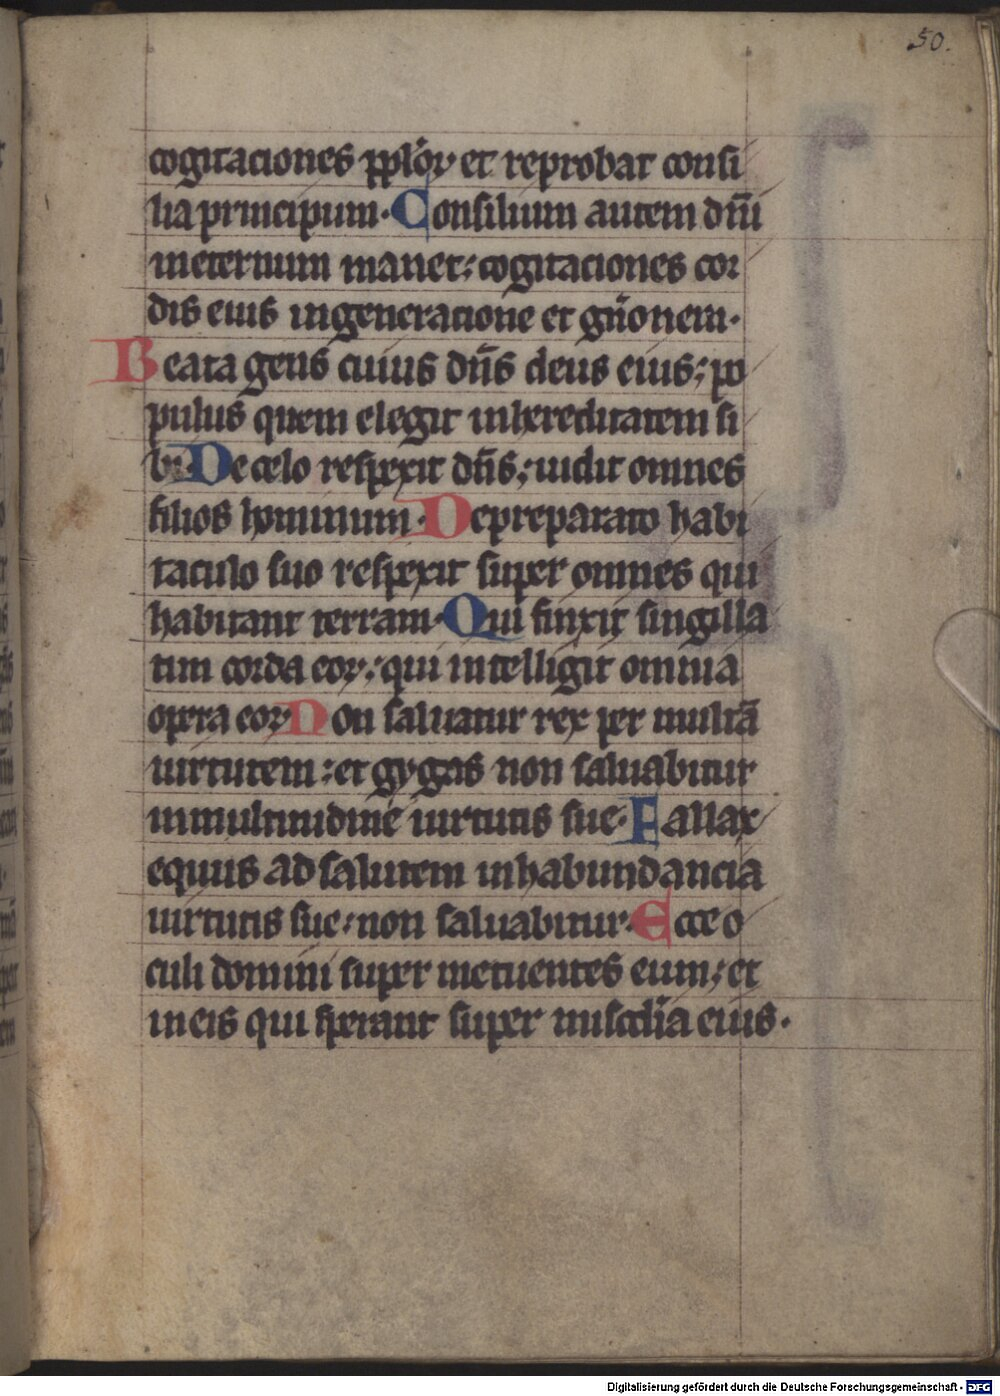 50.
cogitaciones pplor̄ et reprobat consi
lia principum. Consilium autem dn̄i
ineternum manet: cogitaciones cor
dis eius ingeneracione et gn̄onem.
Beata gens cuius dn̄s deus eius; po
pulus quem elegit inhereditatem si
bi. De celo respexit dn̄s; uidit omnes
filios hominum. Depreparato habi
taculo suo respexit super omnes qui
habitant terram. Qui finxit singilla
tim corda eoꝝ: qui intelligit omnia
opera eoꝝ Non saluatur rex per multā
uirtutem: et gygas non saluabitur
inmultitudine uirtutis sue. Fallax
equus ad salutem inhabundancia
uirtutis sue: non saluabitur. Ecce o
culi domini super metuentes eum; et
ineis qui sperant super miscd̄ia eius.
Digitalisierung gefördert durch die Deutsche Forschungsgemeinschaft - DFG